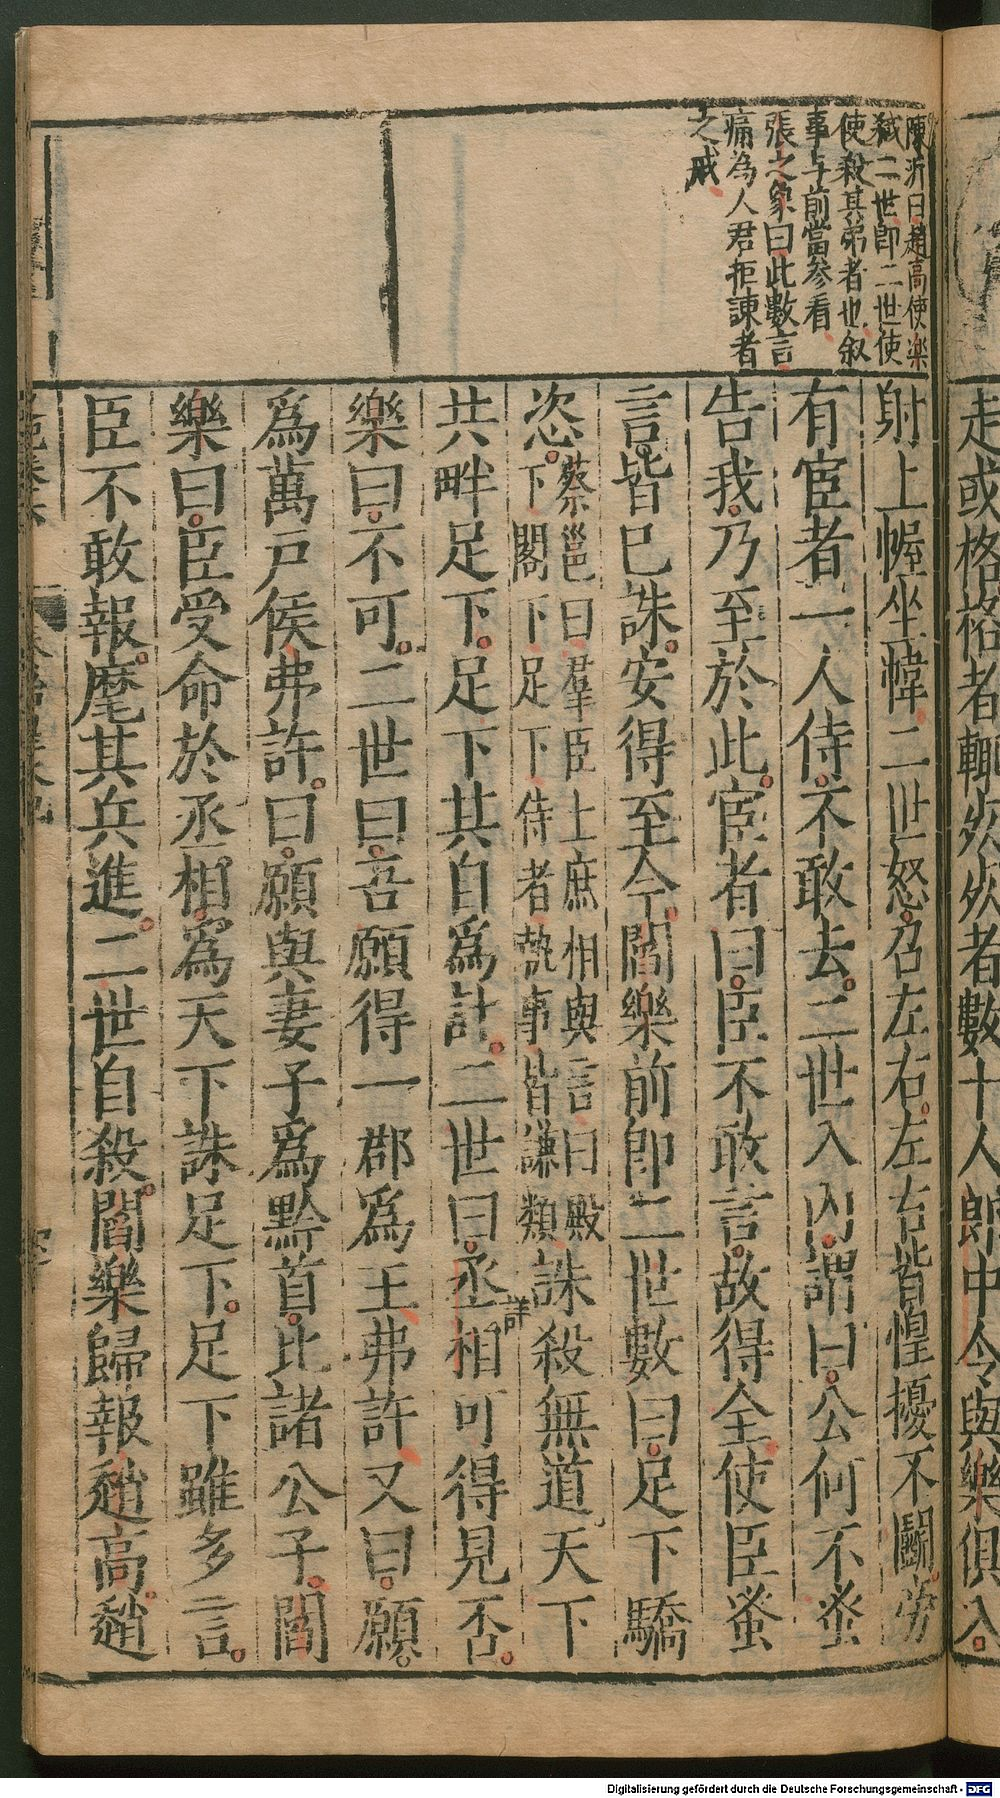 走或格格者輒死死者數十人郎中令與樂俱入
陳沂曰趙高使樂
弑二世即二世使
使殺其弟者也叙
事与前當參看
張之象曰此數言
痛為人君拒諫者
之戒
射上幄坐幃二世怒召左右左右皆惶擾不鬬旁
有宦者一人侍不敢去二世入內謂曰公何不蚤
告我乃至於此宦者曰臣不敢言故得全使臣蚤
言皆已誅安得至今閻樂前即二世數曰足下驕
恣蔡邕曰羣臣上庶相與言曰殿
下閣下足下侍者執事皆謙類誅殺無道天下
詳
共畔足下足下其自爲計二世曰丞相可得見否
樂曰不可二世曰吾願得一郡爲王弗許又曰願
爲萬戸侯弗許曰願與妻子爲黔首比諸公子閻
樂曰臣受命於丞相爲天下誅足下足下雖多言
臣不敢報麾其兵進二世自殺閻樂歸報趙高趙
Digitalisierung gefördert durch die Deutsche Forschungsgemeinschaft - DFG